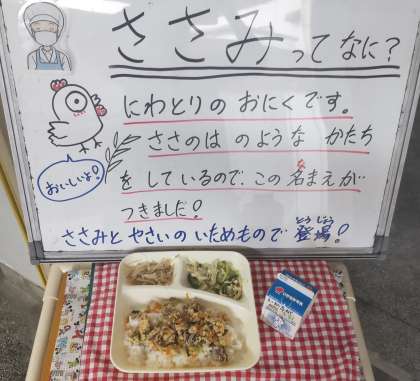 ささみってなに?
にわとりの おにくです。
ささのは のような かたち
を しているので、この 名まえが
な
つきました!
おいしいよ!
ささみと やさいの いためもので 登場!
とう じょう